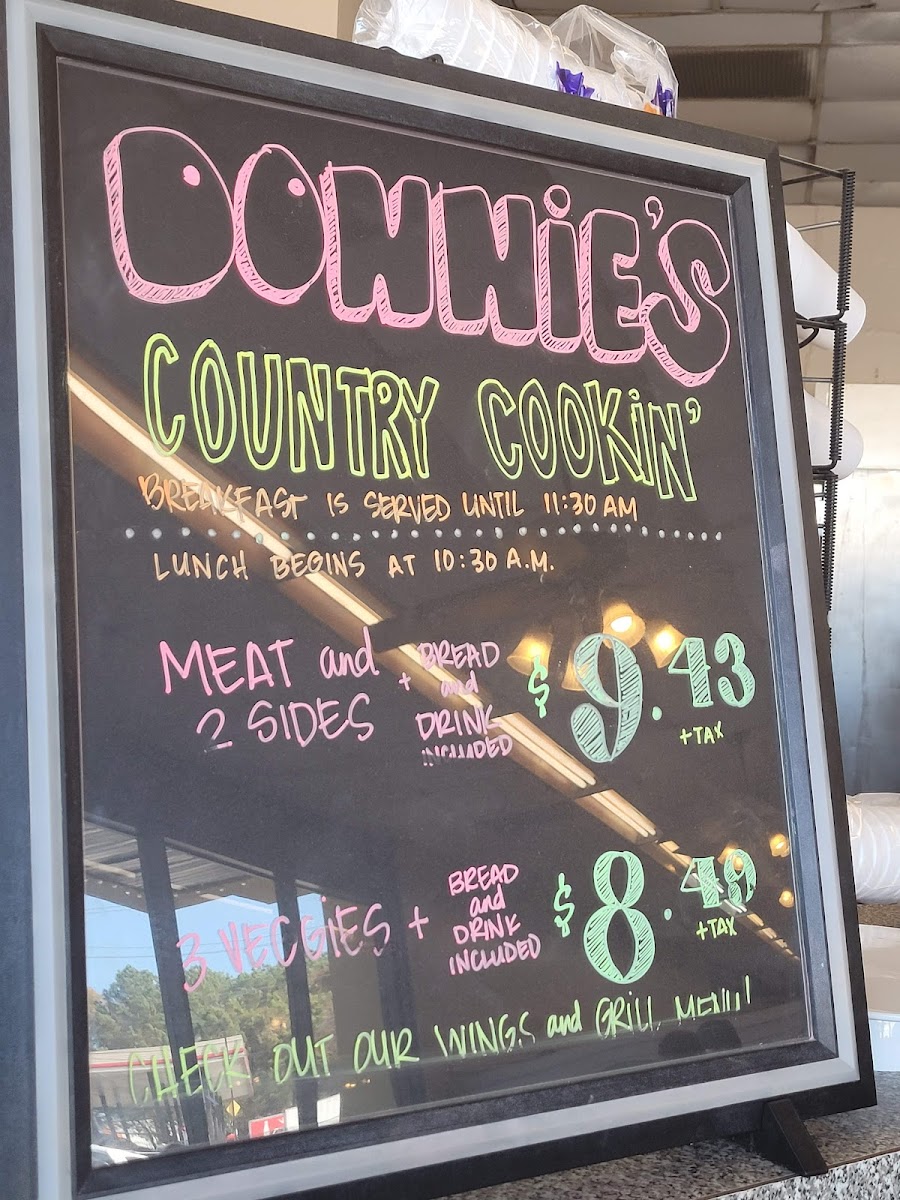 DONNIE'S
COUNTRY COOKIN'
BREAKFAST IS SERVED UNTIL 11:30 AM
LUNCH BEGINS AT 10:30 A.M.
MEAT and
2 SIDES
+ BREAD
and
DRINK
INCLUDED
$9.43
+TAX
3 VEGGIES +
BREAD
and
DRINK
INCLUDED
$8.49
+TAX
CHECK OUT OUR WINGS and GRILL MENU!